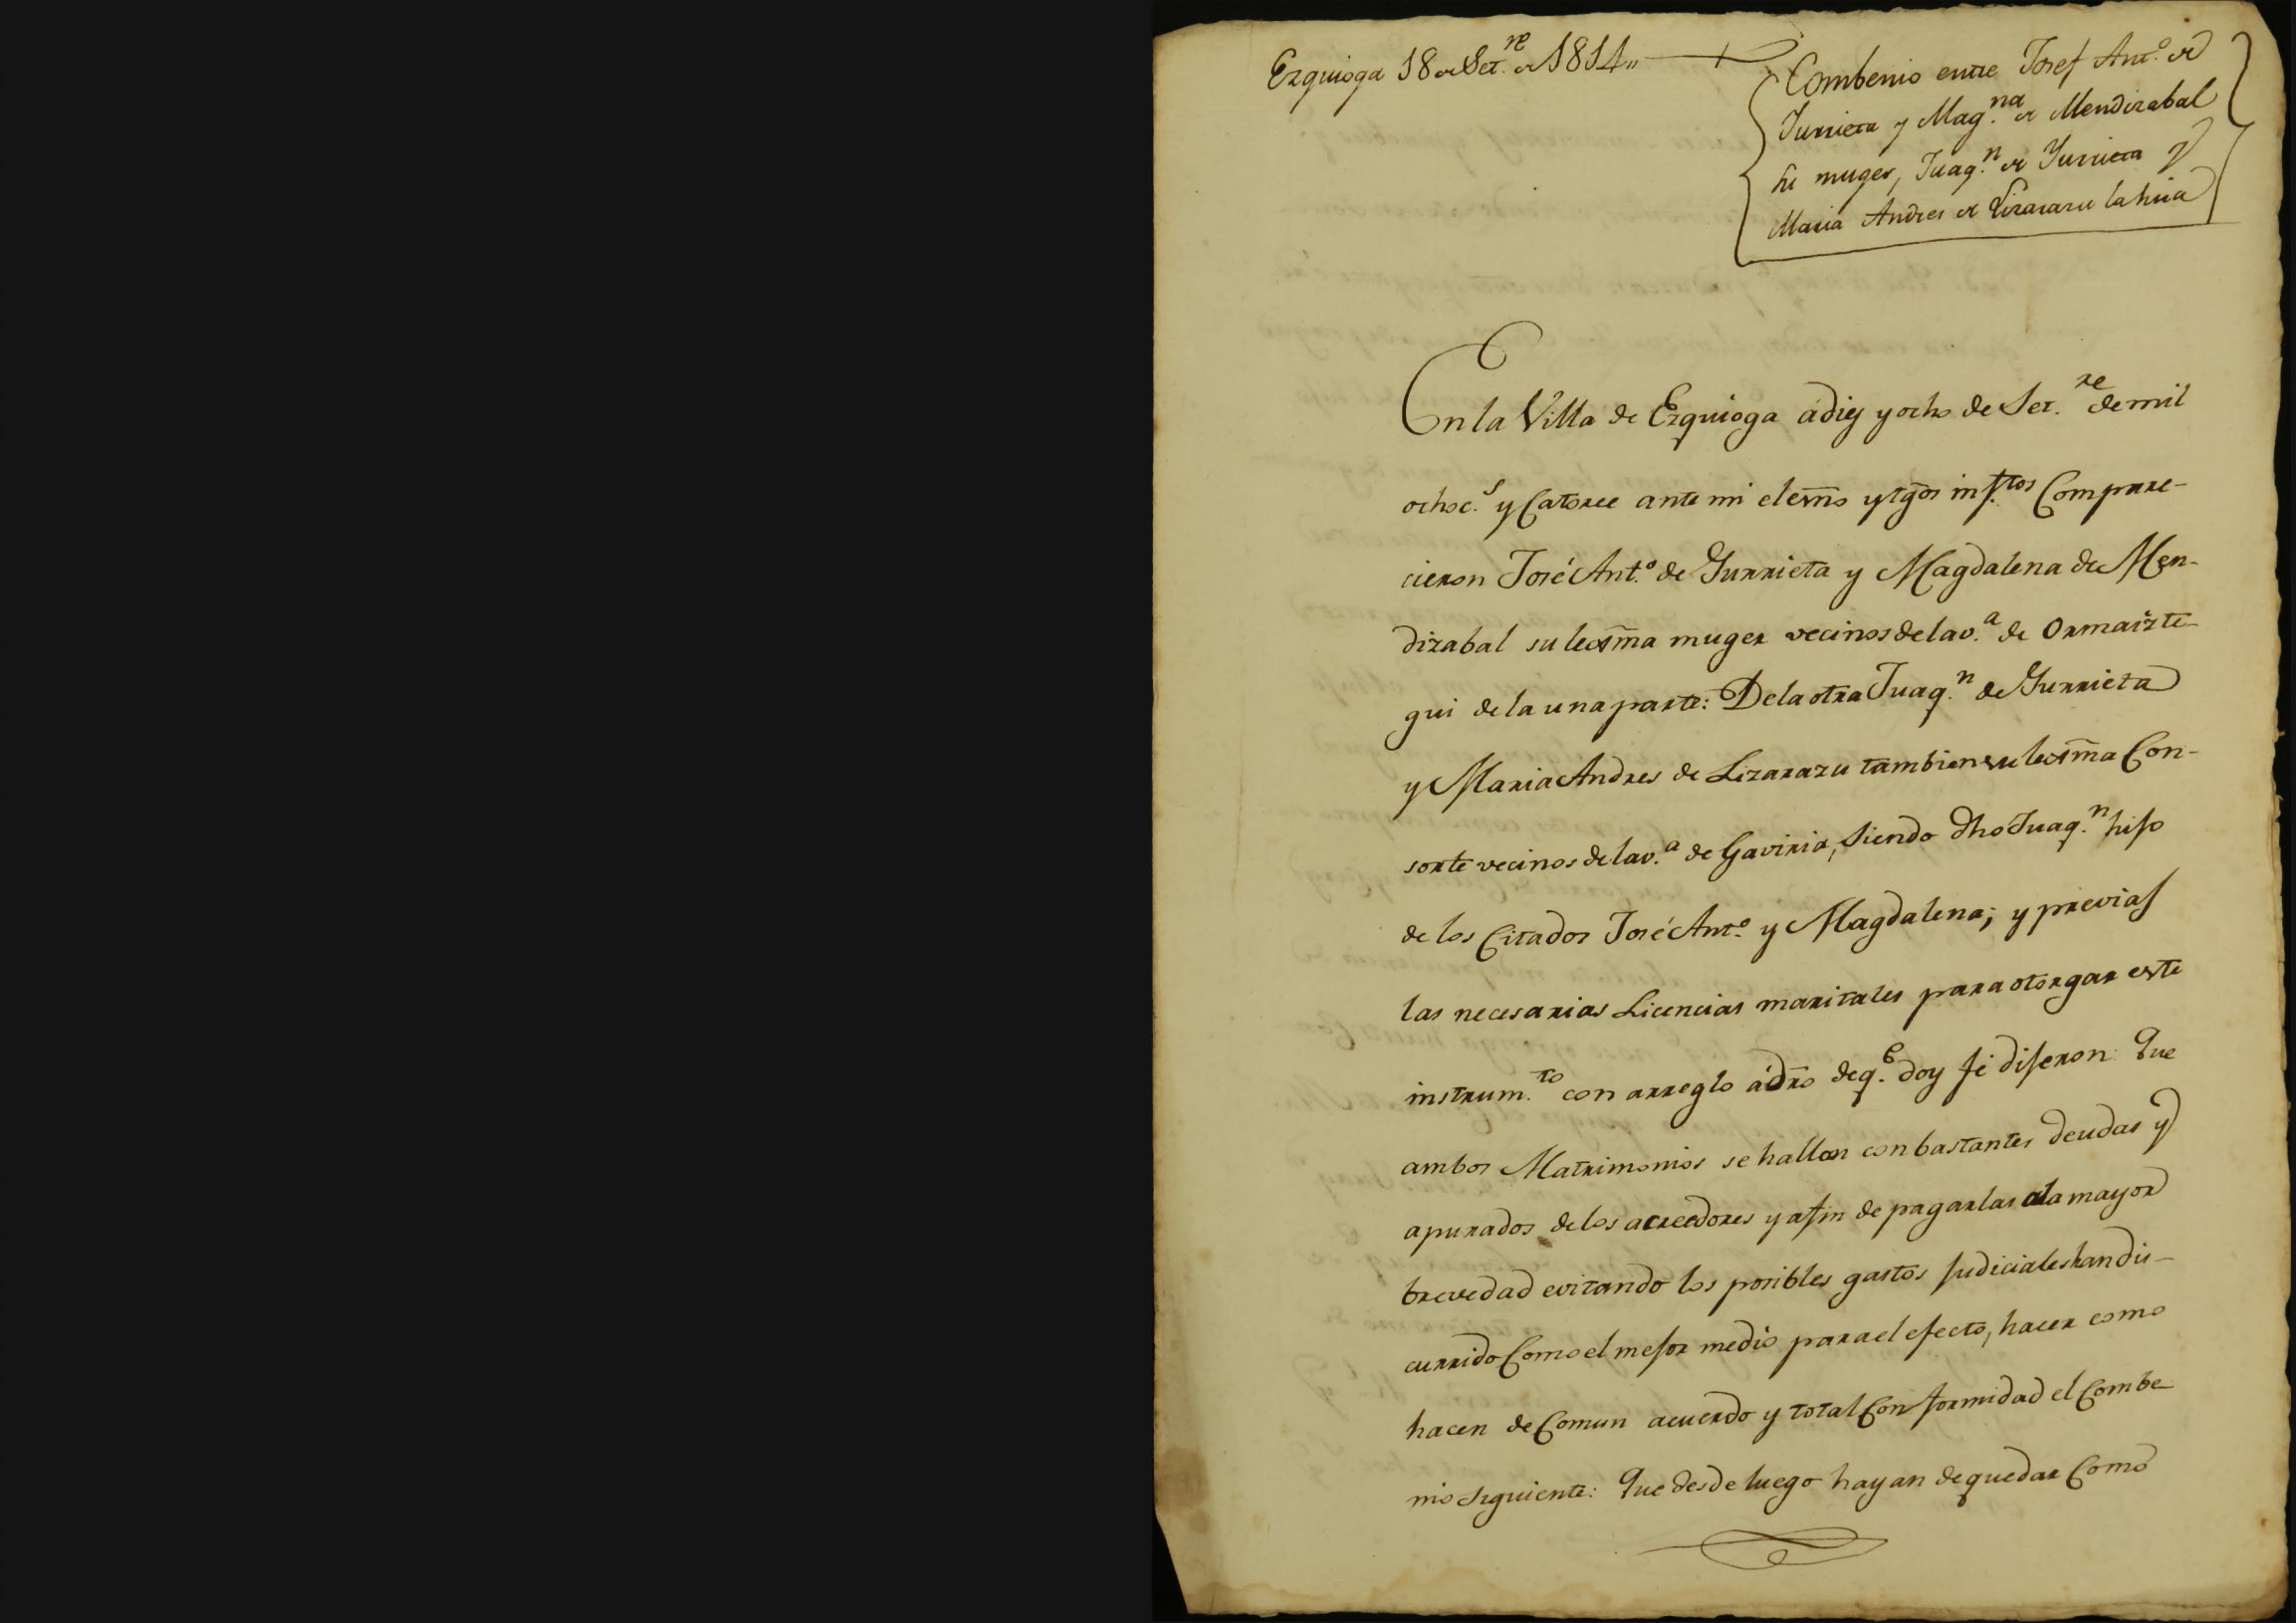 Ezquioga 18 de Set.re de 1814,,
Combenio entre Josef Ant.o de
Yurrieta y Mag.na de Mendizabal
su muger, Juaq.n de Yurrieta y
Maria Andres de Lizarazu la suia
En la Villa de Ezquioga á diez y ocho de Set.re de mil
ochoc.s y Catorce ante mi el esno y tgos inf.tos Compare-
cieron José Ant.o de Yurrieta y Magdalena de Men-
dizabal su lexma muger vecinos de la v.a de Ormaizte-
gui de la una parte: De la otra Juaq.n de Yurrieta
y Maria Andres de Lizarazu tambien su lexma Con-
sorte vecinos de la v.a de Gaviria, siendo dho Juaq.n hijo
de los Citados José Ant.o y Magdalena; y previas
las necesarias Licencias maritales para otorgar este
instrum.to con arreglo á dro de q.e doy fé dijeron: Que
ambos Matrimonios se hallan con bastantes deudas y
apurados de los acreedores y a fin de pagarlas a la mayor
brevedad evitando los posibles gastos judiciales han dis-
currido Como el mejor medio para el efecto, hacer como
hacen de Comun acuerdo y total Conformidad el Combe-
nio siguiente: Que desde luego hayan de quedar Como